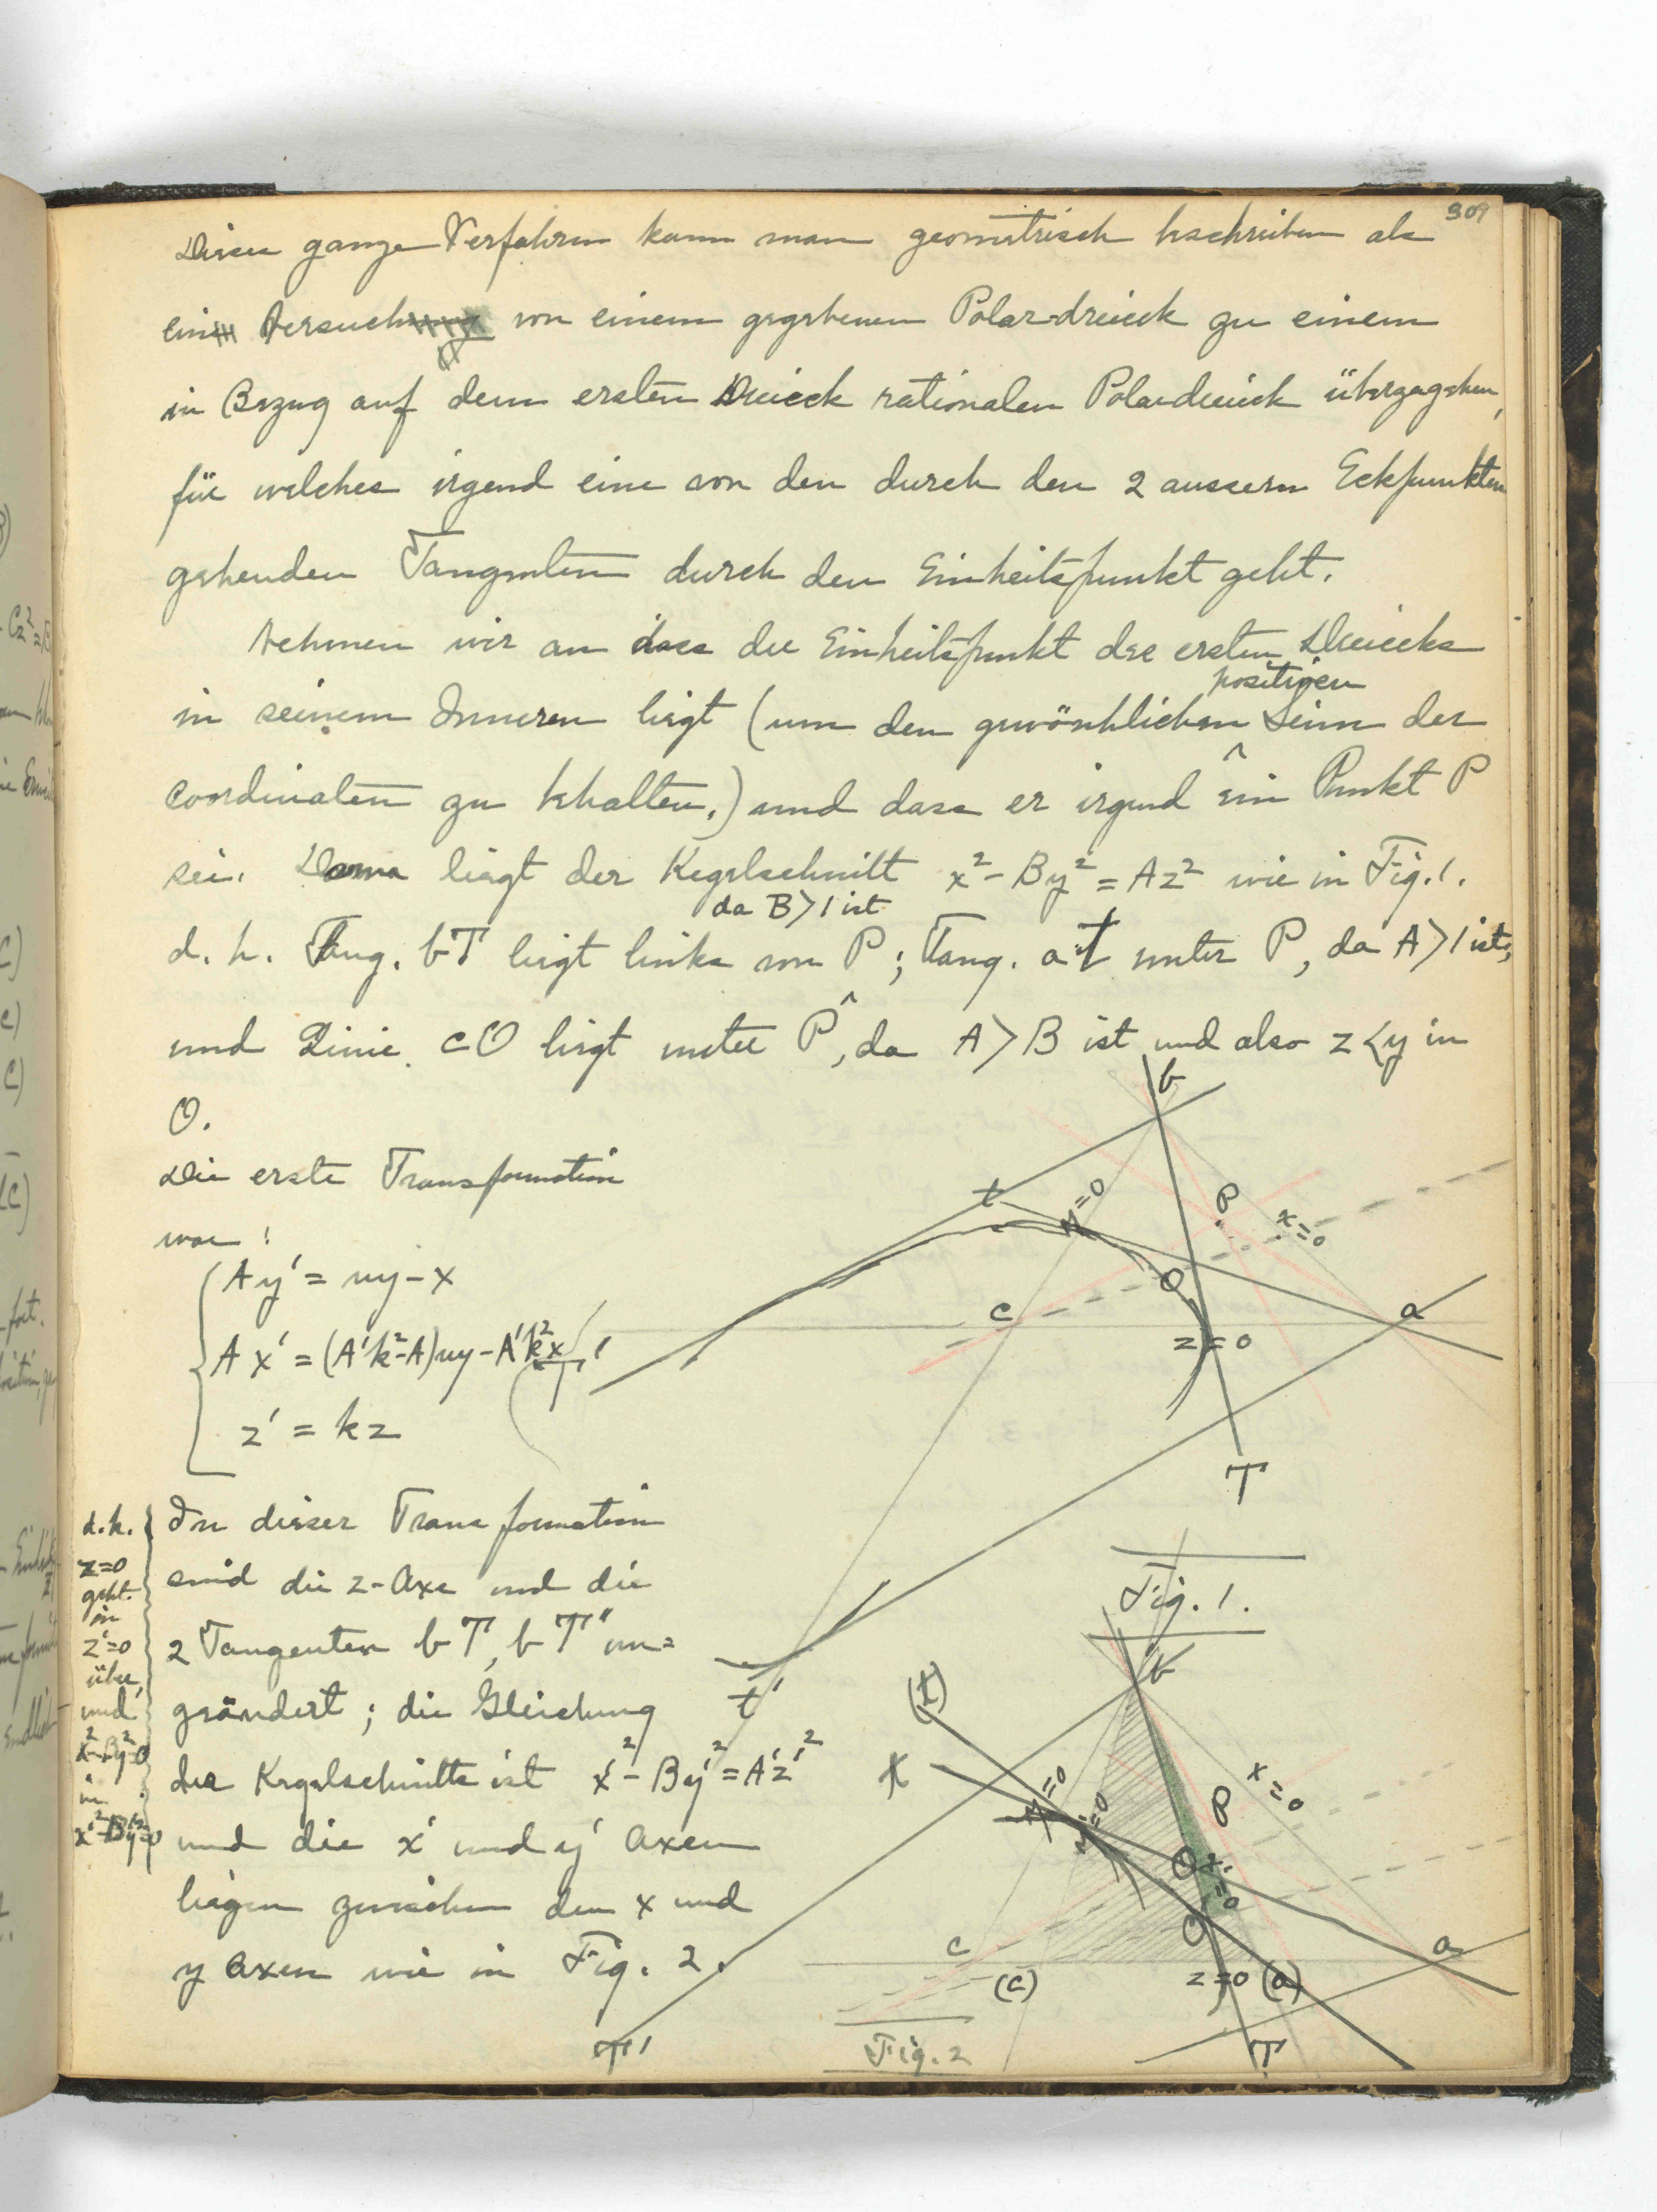 309
Dieses ganze Verfahren kann man geometrisch beschreiben als
ein Versuch von einem gegebenen Polar-dreieck zu einem
in Bezug auf dem ersten Dreieck rationalen Polardreieck überzugehen,
für welches irgend eine von den durch den 2 aussern Eckpunkten
gehenden Tangenten durch den Einheitspunkt geht.
Nehmen wir an dass der Einheitspunkt des ersten Dreiecks
positiven
in seinem Inneren liegt (um den gewönhlichen Sinn der
Coordinaten zu behalten.) und dass er irgend ein Punkt P
sei. Dann liegt der Kegelschnitt x² - By² = Az² wie in Fig. 1.
da B>1 ist
d. h. Tang. bT liegt links von P; Tang. at unter P, da A>1 ist,
und Linie cO liegt unter P, da A>B ist und also z<y in
O.
Die erste Transformation
war:
Ay' = uy - x
Ax' = (A'k² - A)uy - A'k²x
z' = kz
In dieser Transformation
sind die z-Axe und die
2 Tangenten bT, bT' un=
geändert; die Gleichung
des Kegelschnitts ist x'² - By'² = A'z'²
und die x' und y' Axen
liegen zwischen den x und
y Axen wie in Fig. 2.
d.h.
z=0
geht
in
z'=0
über,
und
x²-By²=0
in
x'²-By'²=0
b
t
y=0
P
x=0
O
c
z=0
a
T'
T
t'
Fig. 1.
b
(t)
t
y=0
y'=0
P
x=0
O
x'=0
O
c
(c)
z=0
(a)
a
T'
T
Fig. 2